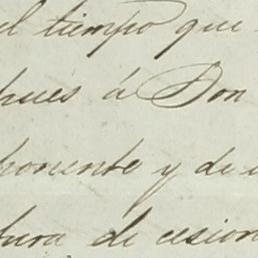 el tiempo que
pues á Don
ponente y de
tura de cesion